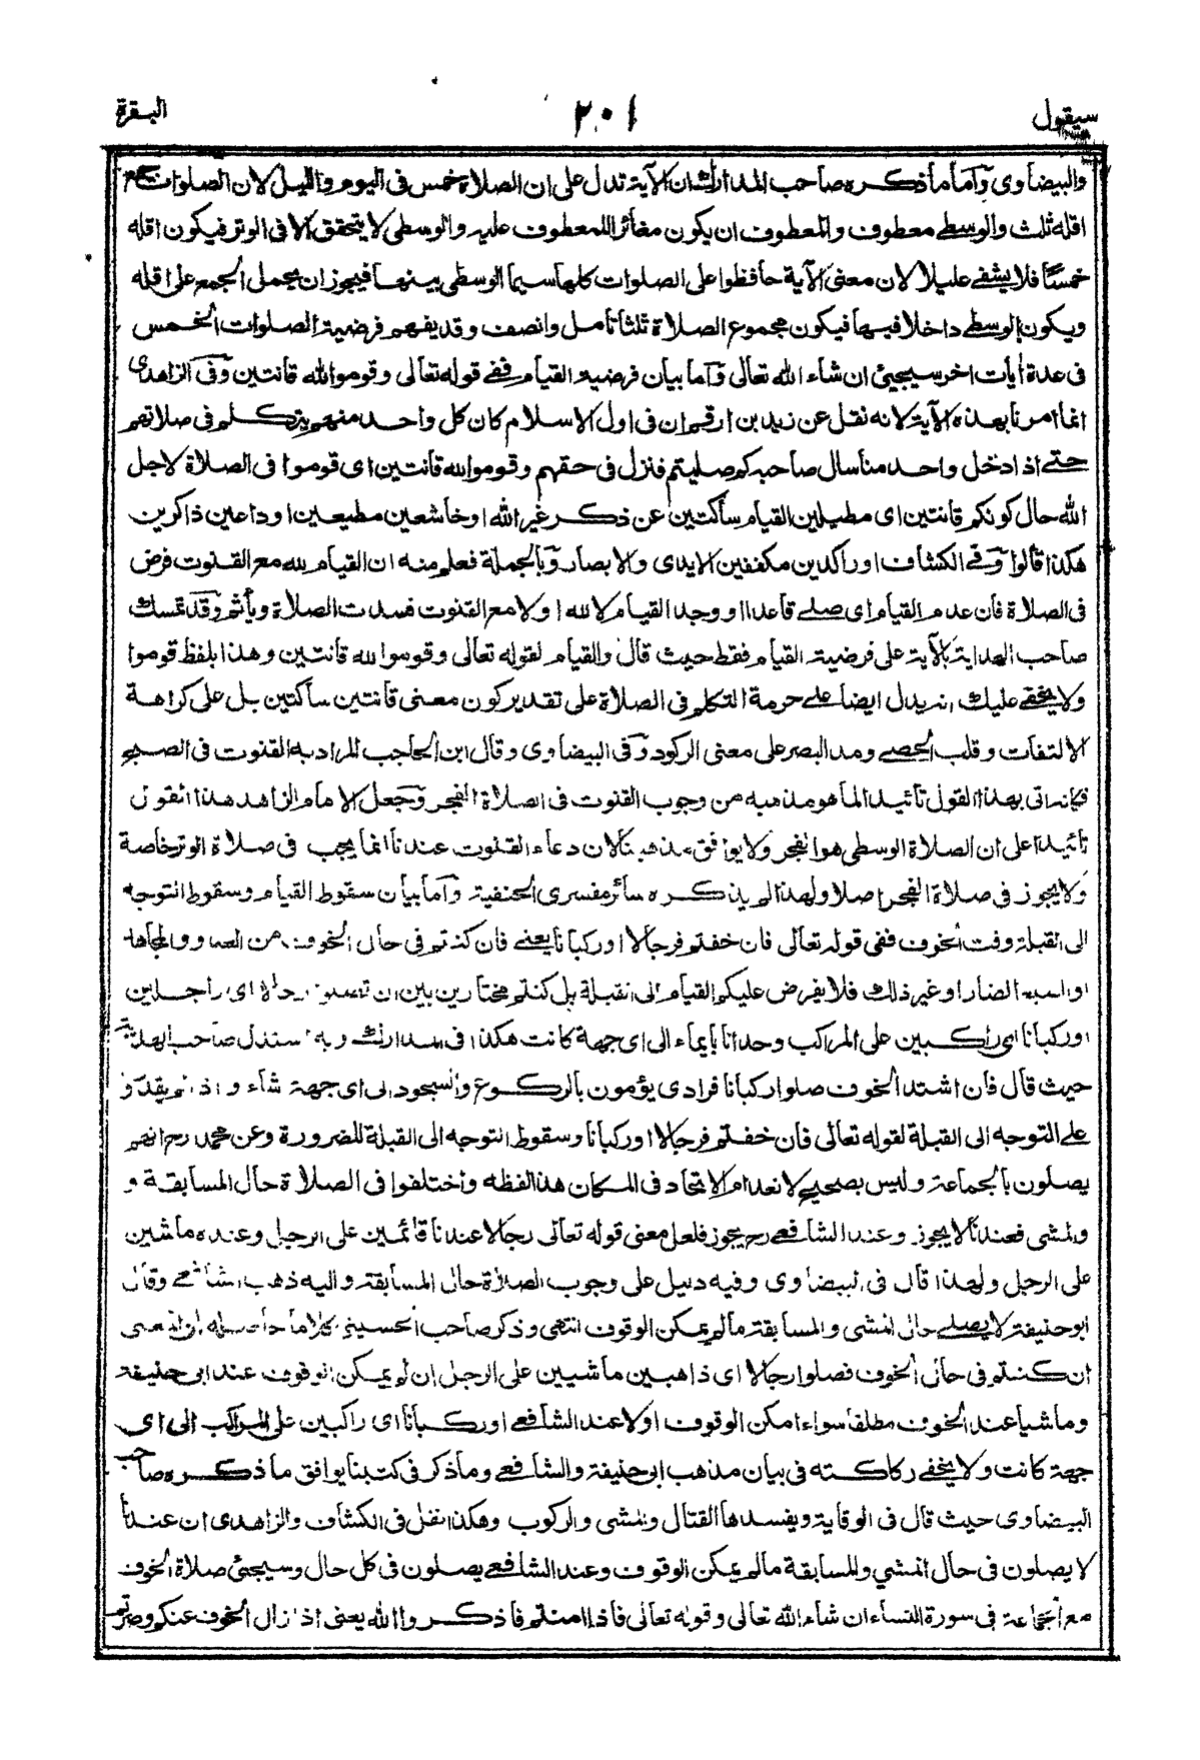 سيقول
٢٠١
البقرة
والبيضاوى وأما ما ذكره صاحب المدارك ان الآية تدل على ان الصلاة خمس فى اليوم والليل لان الصلوات جمع
اقله ثلث والوسطى معطوف والمعطوف ان يكون مغائر اللمعطوف عليه والوسطى لا يتحقق الا فى الوتر فيكون اقله
خمسًا فلا يشفى عليلا لان معنى الآية حافظوا على الصلوات كلها سيما الوسطى بينها فيجوز ان يحمل الجمع على اقله
ويكون الوسطى داخلا فيها فيكون مجموع الصلاة ثلثا تامل وانصف وقد يفهم فرضية الصلوات الخمس
فى عدة أيات اخر سيجيئ ان شاء الله تعالى وأما بيان فرضية القيام ففى قوله تعالى وقوموا لله قانتين وفى الزاهدى
انما امرنا بهذه الآية لانه نقل عن زيد بن ارقم ان فى اول الاسلام كان كل واحد منهم يتكلم فى صلاتهم
حتى اذا دخل واحد منا سال صاحبه كم صليتم فنزل فى حقهم وقوموا لله قانتين اى قوموا فى الصلاة لاجل
الله حال كونكم قانتين اى مطيلين القيام ساكتين عن ذكر غير الله او خاشعين مطيعين او داعين ذاكرين
هكذا قالوا وفى الكشاف او راكدين مكففين الايدى والابصار وبالجملة فعلم منه ان القيام لله مع القنوت فرض
فى الصلاة فان عدم القيام اى صلى قاعدا او وجد القيام لا لله او لا مع القنوت فسدت الصلاة ويأثم وقد تمسك
صاحب الهداية بالآية على فرضية القيام فقط حيث قال والقيام لقوله تعالى وقوموا لله قانتين وهذا بلفظ قوموا
ولا يخفى عليك انه يدل ايضا على حرمة التكلم فى الصلاة على تقدير كون معنى قانتين ساكتين بل على كراهة
الالتفات وقلب الحصى ومد البصر على معنى الركود وفى البيضاوى وقال ابن الحاجب المراد به القنوت فى الصبح
فكانه اتى بهذا القول تائيد الما هو مذهبه من وجوب القنوت فى صلاة الفجر وجعل الامام الزاهد هذا القول
تائيدا على ان الصلاة الوسطى هو الفجر ولا يوافق مذهبنا لان دعاء القنوت عندنا انما يجب فى صلاة الوتر خاصة
ولا يجوز فى صلاة الفجر اصلا ولهذا لم يذكره سائر مفسرى الحنفية وأما بيان سقوط القيام وسقوط التوجه
الى القبلة وقت الخوف ففى قوله تعالى فان خفتم فرجالا او ركبانا يعنى فان كنتم فى حال الخوف من العدو
او السبع الضار او غير ذلك فلا يفرض عليكم القيام الى القبلة بل كنتم مختارين بين ان تصلوا رجالا اى راجلين
او ركبانا اى راكبين على المراكب وحدانا بايماء الى اى جهة كانت هكذا فى المدارك وبه استدل صاحب الهداية
حيث قال فان اشتد الخوف صلوا ركبانا فرادى يؤمون بالركوع والسجود الى اى جهة شاء و اذا لم يقدروا
على التوجه الى القبلة لقوله تعالى فان خفتم فرجالا او ركبانا وسقوط التوجه الى القبلة للضرورة وعن محمد رح انهم
يصلون بالجماعة وليس بصحيح لانعدام الاتحاد فى المكان هذا لفظه واختلفوا فى الصلاة حال المسابقة و
والمشى فعندنا لا يجوز وعند الشافعى رح يجوز فلعل معنى قوله تعالى رجالا عندنا قائمين على الرجل وعنده ماشين
على الرجل ولهذا قال فى البيضاوى وفيه دليل على وجوب الصلاة حال المسابقة واليه ذهب الشافعى وقال
ابو حنيفة لا يصلى حال المشى والمسابقة ما لم يمكن الوقوف انتهى وذكر صاحب الحسينى كلاما حاصله ان المعنى
ان كنتم فى حال الخوف فصلوا رجالا اى ذاهبين ماشيين على الرجل ان لم يمكن الوقوف عند ابى حنيفة
وماشيا عند الخوف مطلقا سواء امكن الوقوف اولا عند الشافعى او ركبانا اى راكبين على المراكب الى اى
جهة كانت ولا يخفى ركاكته فى بيان مذهب ابى حنيفة والشافعى وما ذكر فى كتبنا يوافق ما ذكره صاحب
البيضاوى حيث قال فى الوقاية ويفسدها القتال والمشى والركوب وهكذا نقل فى الكشاف والزاهدى ان عندنا
لا يصلون فى حال المشي والمسابقة ما لم يمكن الوقوف وعند الشافعى يصلون فى كل حال وسيجئ صلاة الخوف
مع الجماعة فى سورة النساء ان شاء الله تعالى وقوله تعالى فاذا امنتم فاذكروا الله يعنى اذا زال الخوف عنكم وصرتم